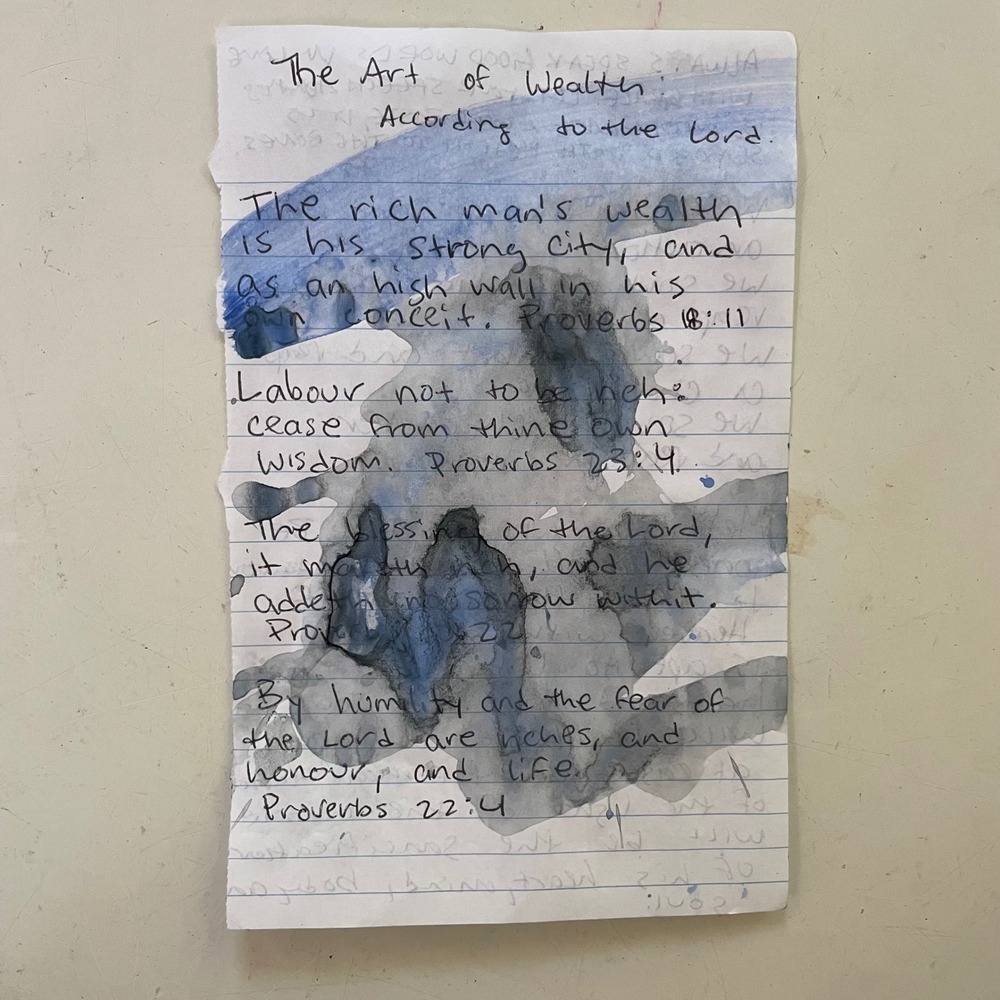 The Art of Wealth:
According to the Lord.
The rich man's wealth
is his strong city, and
as an high wall in his
own conceit. Proverbs 18:11
Labour not to be rich:
cease from thine own
wisdom. Proverbs 23:4
The blessing of the Lord,
it maketh rich, and he
addeth no sorrow with it.
22
By humility and the fear of
the Lord are riches, and
honour, and life.
Proverbs 22:4